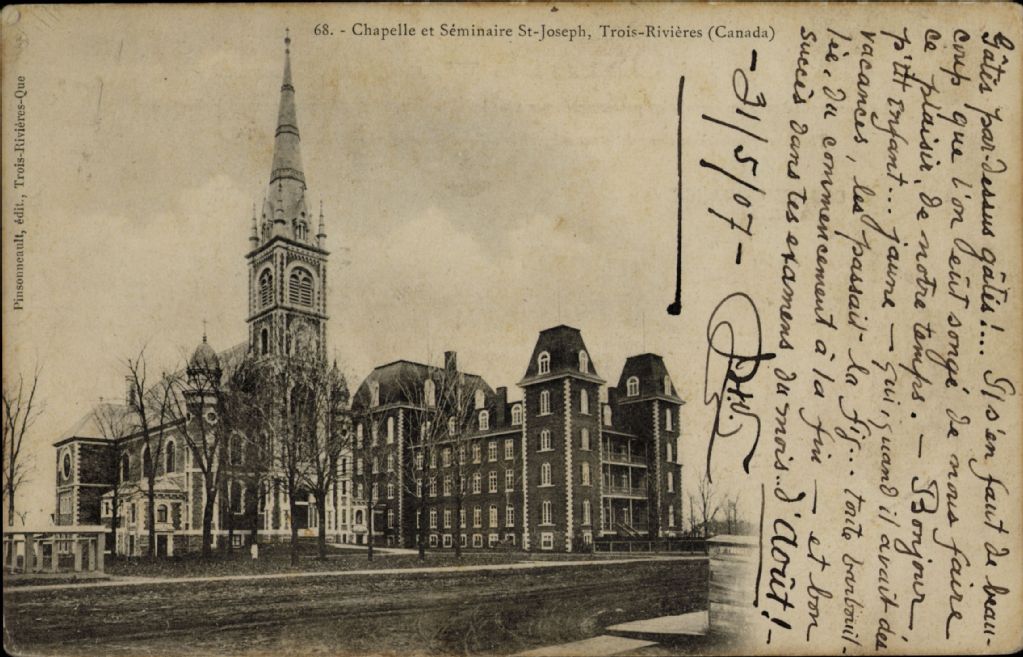 68. - Chapelle et Séminaire St-Joseph, Trois-Rivières (Canada)
Pinsonneault, édit., Trois-Rivières-Que
Gâtés par-dessus gâtés!... Il s'en faut de beau-
coup que l'on eût songé de nous faire
ce plaisir, de notre temps. — Bonjour,
p'tit enfant... jaune — qui, quand il avait des
vacances, les passait la fig... toute barbouil-
lée. du commencement à la fin — et bon
succès dans tes examens du mois.. d'août!-
- 31/5/07 -